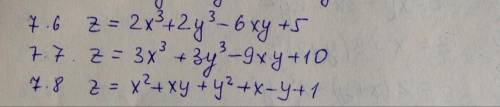 7.6 z = 2x³+2y³-6xy+5
7.7. z = 3x³+3y³-9xy+10
7.8 z = x²+xy+y²+x-y+1